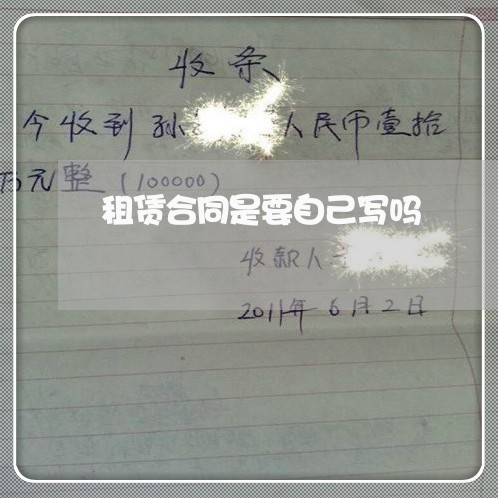 收条
今收到孙 人民币壹拾
万元整(100000)
租赁合同是要自己写吗
收款人
2011年6月2日